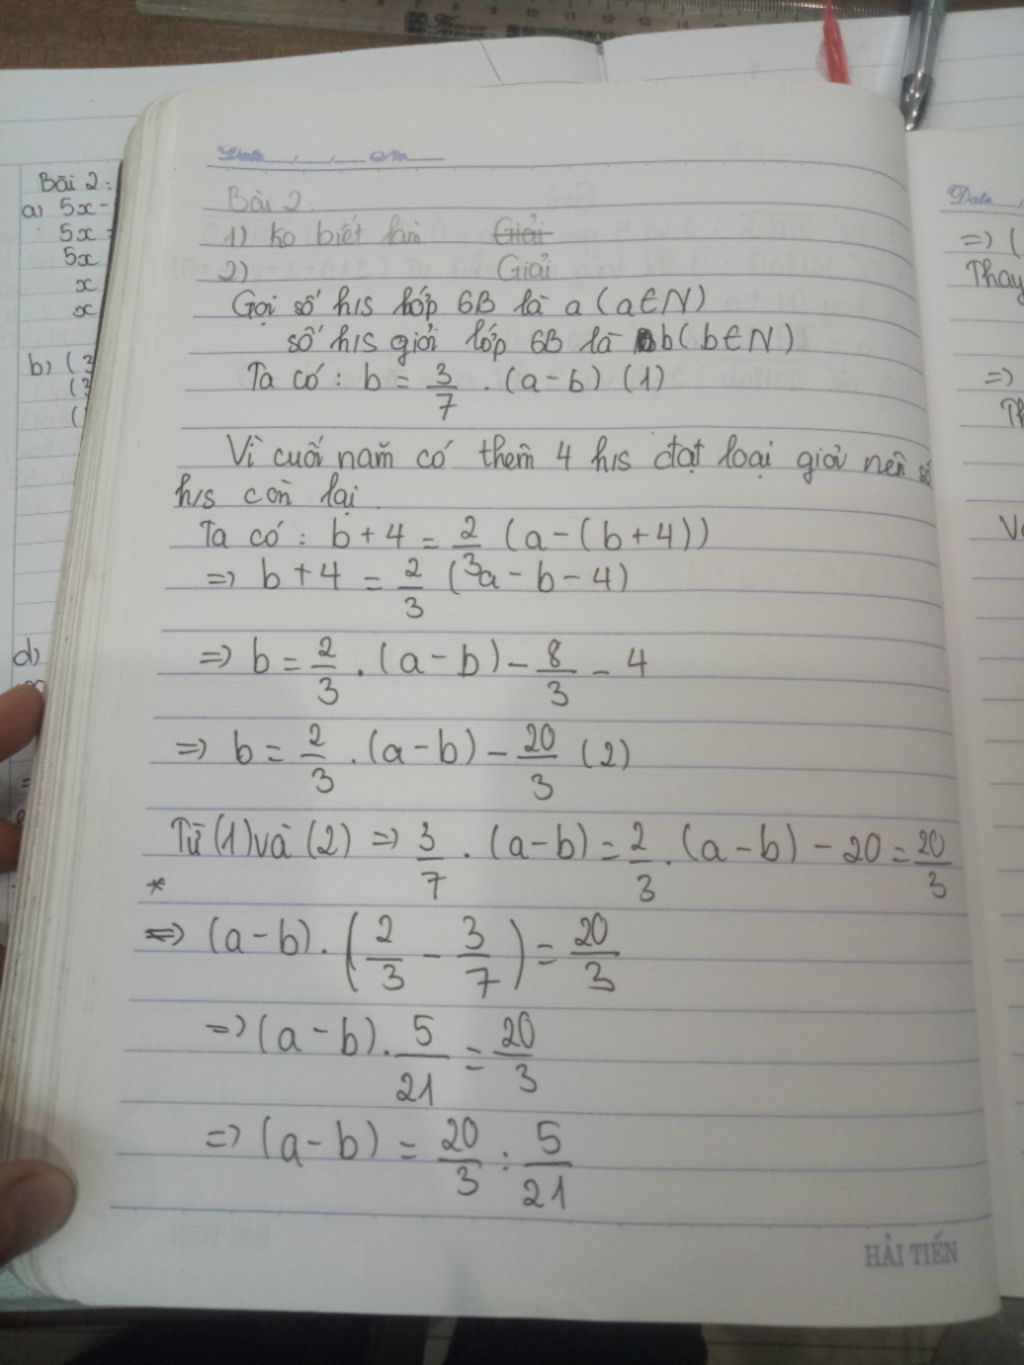 Bài 2:
a) 5x-
5x
5x
x
x
b) (3
(3
(
d)
Date
Bài 2:
1) Ko biết làm Giải
2) Giải
Gọi số h/s lớp 6B là a (a∈N)
số h/s giỏi lớp 6B là b (b∈N)
Ta có: b = 3/7 . (a-b) (1)
Vì cuối năm có thêm 4 h/s đạt loại giỏi nên số
h/s còn lại
Ta có: b+4 = 2/3 (a-(b+4))
=> b+4 = 2/3 (a-b-4)
=> b = 2/3 . (a-b) - 8/3 - 4
=> b = 2/3 . (a-b) - 20/3 (2)
Từ (1) và (2) => 3/7 . (a-b) = 2/3 . (a-b) - 20 = 20/3
*
=> (a-b) . (2/3 - 3/7) = 20/3
=> (a-b) . 5/21 = 20/3
=> (a-b) = 20/3 : 5/21
HẢI TIẾN
Date
=> (
Thay
=>
Th